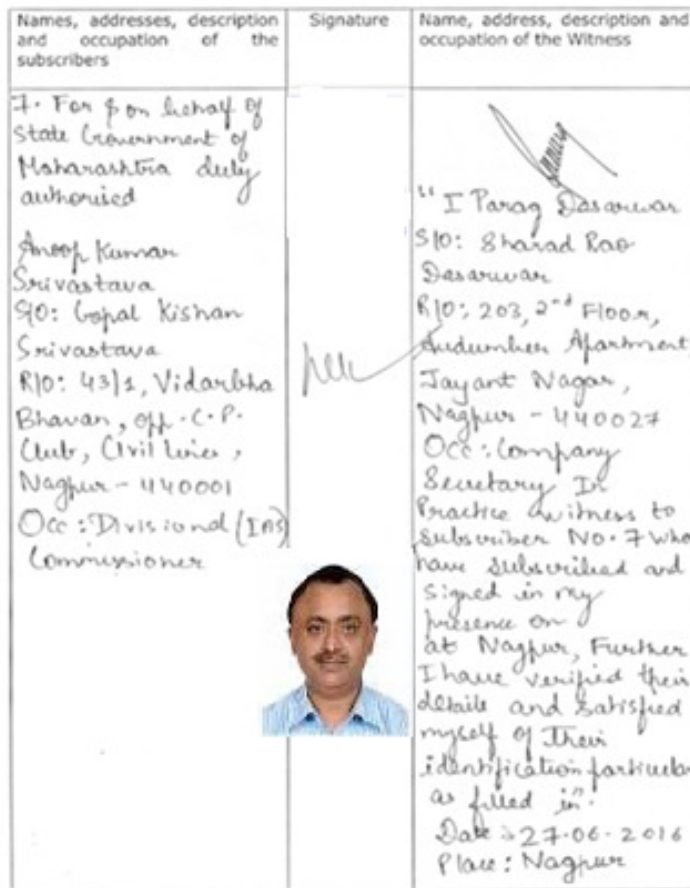 Names, addresses, description
and occupation of the
subscribers
7. For & on behalf of
State Government of
Maharashtra duly
authorised
Anoop Kumar
Srivastava
S/O: Gopal Kishan
Srivastava
R/O: 43/1, Vidarbha
Bhavan, opp. C.P.
Club, Civil Lines,
Nagpur - 440001
Occ: Divisional (IAS)
Commissioner
Signature
Name, address, description and
occupation of the Witness
"I Parag Dasarwar
S/O: Sharad Rao
Dasarwar
R/O: 203, 2nd Floor,
Audumber Apartment
Jayant Nagar,
Nagpur - 440027
Occ: Company
Secretary In
Practice witness to
Subscriber No. 7 who
have subscribed and
signed in my
presence on
at Nagpur, Further
I have verified their
details and satisfied
myself of their
identification particular
as filled in".
Date: 27-06-2016
Place: Nagpur